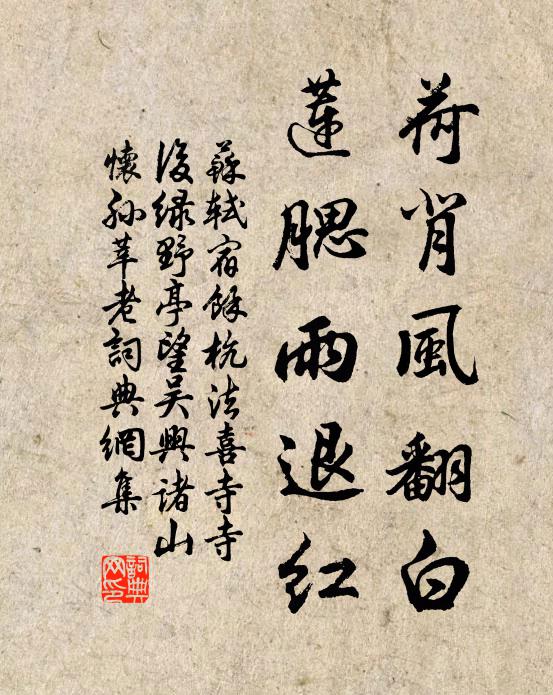 荷背風翻白
蓮腮雨退紅
蘇軾宿餘杭法喜寺寺
後緑野亭望吳興諸山
懷孙莘老詞典網集
詞典
网印